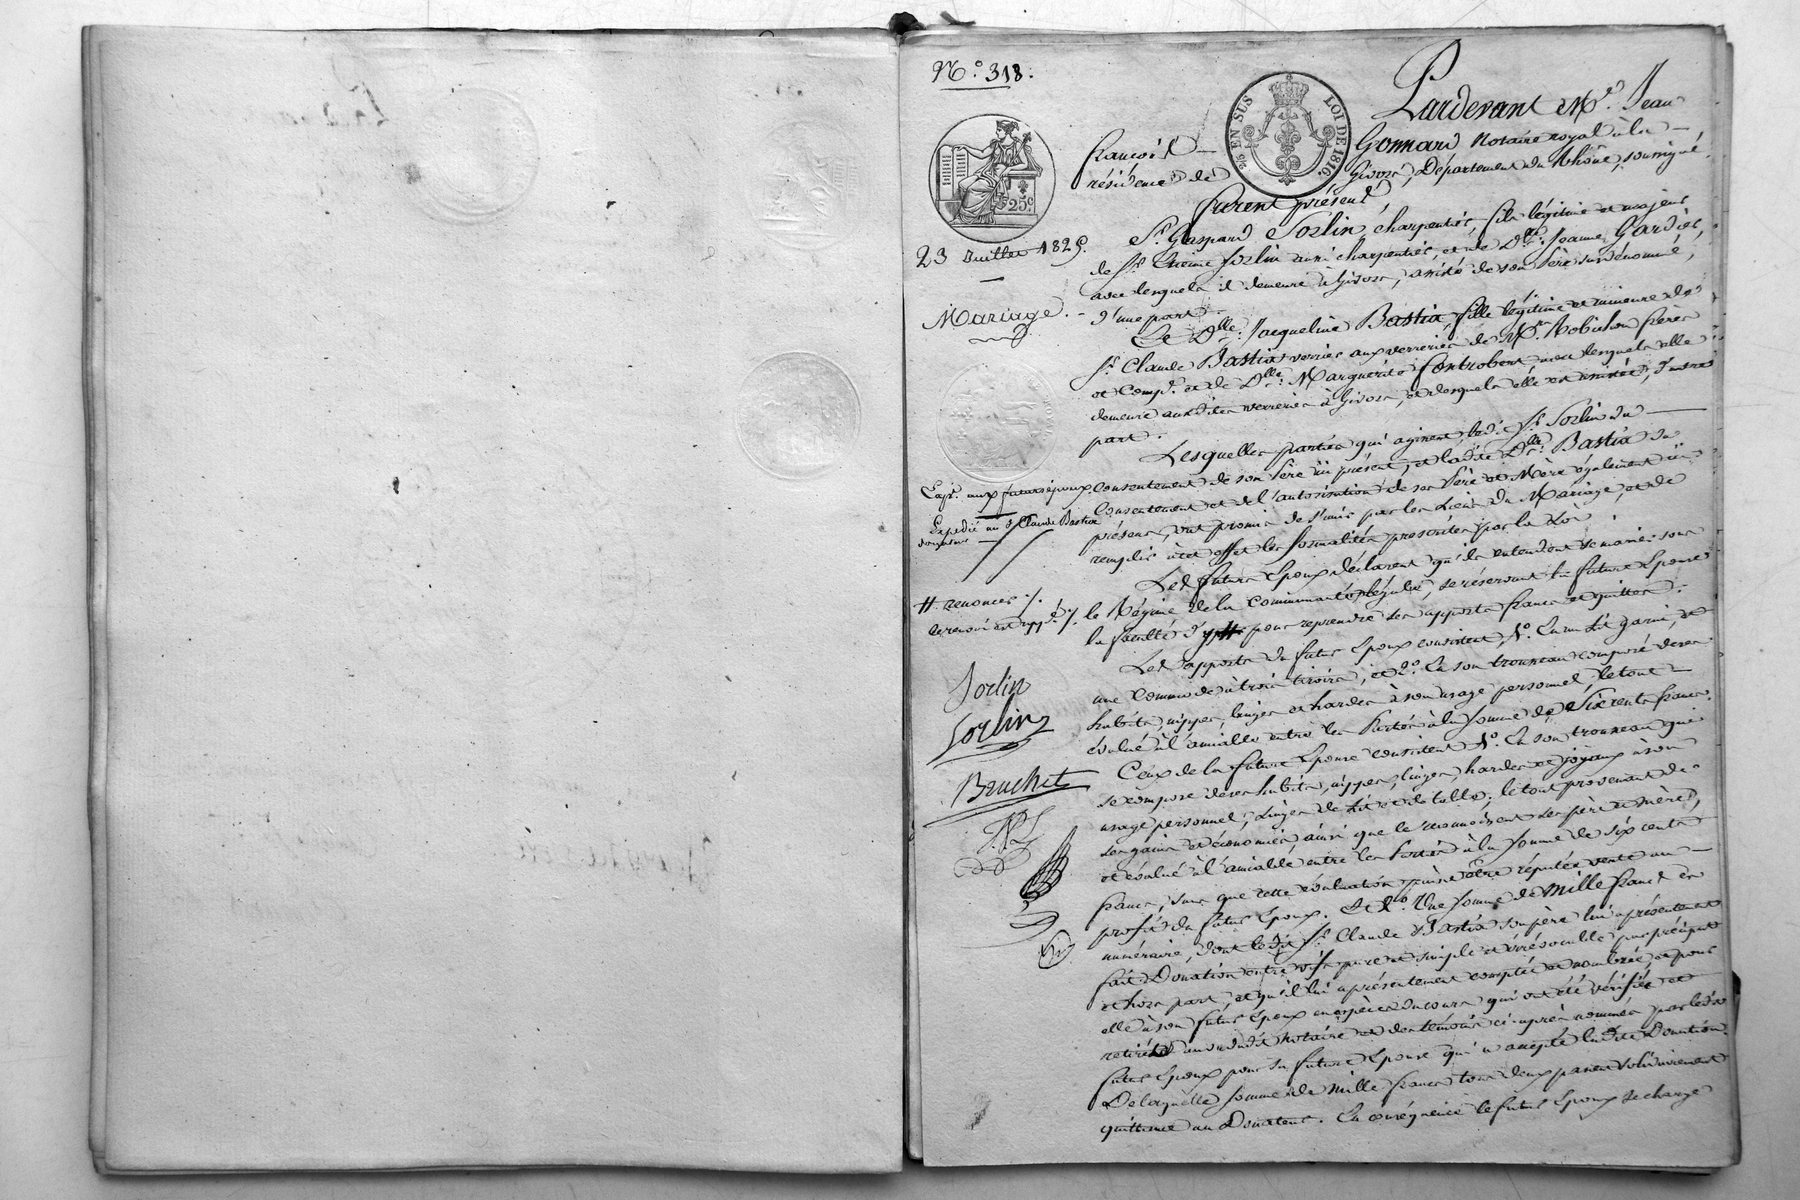 N.º 318.
Pardevant Me. Jean
François Gonnard Notaire royal à la
résidence de Givors, Département du Rhône, soussigné,
25 EN SUS LOI DE 1816.
25.c
furent présents
23 Juillet 1825.
Mariage.
Sr. Gaspard Sorlin, charpentier, fils légitime et majeur
de Sr. Etienne Sorlin aussi charpentier, et de Dlle. Jeanne Gardier,
avec lesquels il demeure à Givors, assisté de son Père susdénommé,
d'une part.
Et Dlle. Jacqueline Bastia, fille légitime et mineure de
Sr. Claude Bastia verrier aux verreries de MMrs. Robichon frères
et Compe. et de Dlle. Marguerite avec lesquels elle
demeure auxdites verreries à Givors, et desquels elle est assistée, d'autre
part.
Lesquelles parties qui agissent, ledit Sr. Sorlin du
consentement de son Père ici présent, et ladite Dlle. Bastia du
consentement et de l'autorisation de ses Père et Mère également ici
présens, ont promis de s'unir par les Liens du Mariage, et de
remplir à cet effet les formalités prescrites par la Loi.
Expé. aux futurs époux.
Expédié au Sr Claude Bastia
Les futurs Epoux déclarent qu'ils entendent se marier sous
le Régime de la Communauté légale, se réservant la future Epouse
la faculté d'y # pour reprendre ses apports francs et quittes.
# renoncer /.
le renvoi est appé. /.
Les apports du futur Epoux consistent 1º. En un Lit garni, et
une Commode à trois tiroirs, et 2º. En son trousseau composé de ses
habits, nippes, linges et hardes à son usage personnel, le tout
évalué à l'amiable entre les Parties à la Somme de Six cents francs.
Sorlin
Sorlin
Bruchet
Ceux de la future Epouse consistent 1º. En son trousseau qui
se compose de ses habits, nippes, linges, hardes et joyaux à son
usage personnel, Linges de Lit et de table, le tout provenant de
ses gains et économies, ainsi que le reconnoissent ses père et mère,
et évalué à l'amiable entre les Parties à la Somme de six cents
francs, sans que cette évaluation puisse être réputée vente au
profit du futur Epoux. Et 2º. Une Somme de Mille francs en
numéraire, dont ledit Sr. Claude Bastia son père lui a présentement
fait Donation entre vifs pure et simple et irrévocable par préciput
et hors part, et qu'il lui a présentement comptée et nombrée, et pour
elle à son futur Epoux en espèces du cours qui ont été vérifiées et
retirées au vu dudit Notaire et des témoins ci-après nommés par ledit
futur Epoux pour sa future Epouse qui a accepté ladite Donation.
De laquelle somme de Mille francs tous deux passent solidairement
quittance au Donateur. En conséquence le futur Epoux se charge